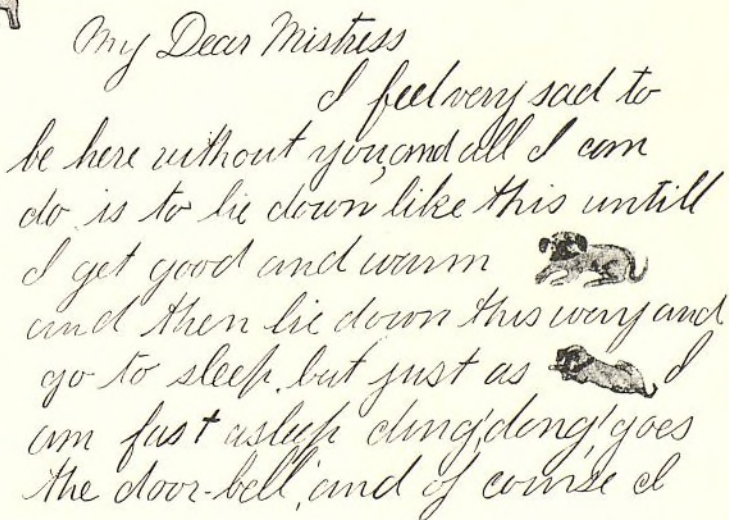 My Dear Mistress
I feel very sad to
be here without you, and all I can
do is to lie down like this untill
I get good and warm
and then lie down this way and
go to sleep, but just as I
am fast asleep ding, dong! goes
the door-bell, and of course I